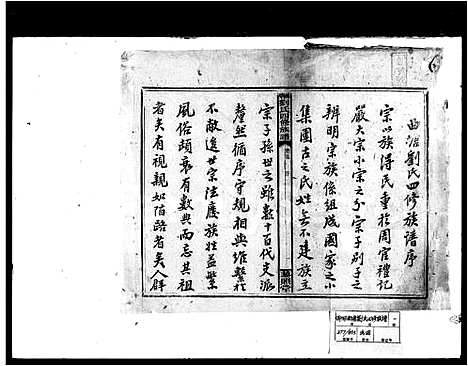 曲沱劉氏四修族譜序
宗以族得民重於周官禮記
嚴大宗小宗之分宗子別子之
辨明宗族係組成國家之小
集團古之氏姓無不建族立
劉氏四修族譜
宗子孫世之雖數十百代支派
釐然循序守規相與維繫於
不敝迨世宗法廢族牲益繁
風俗頹衰有數典而忘其祖
者矣有視親如陌路者矣入群